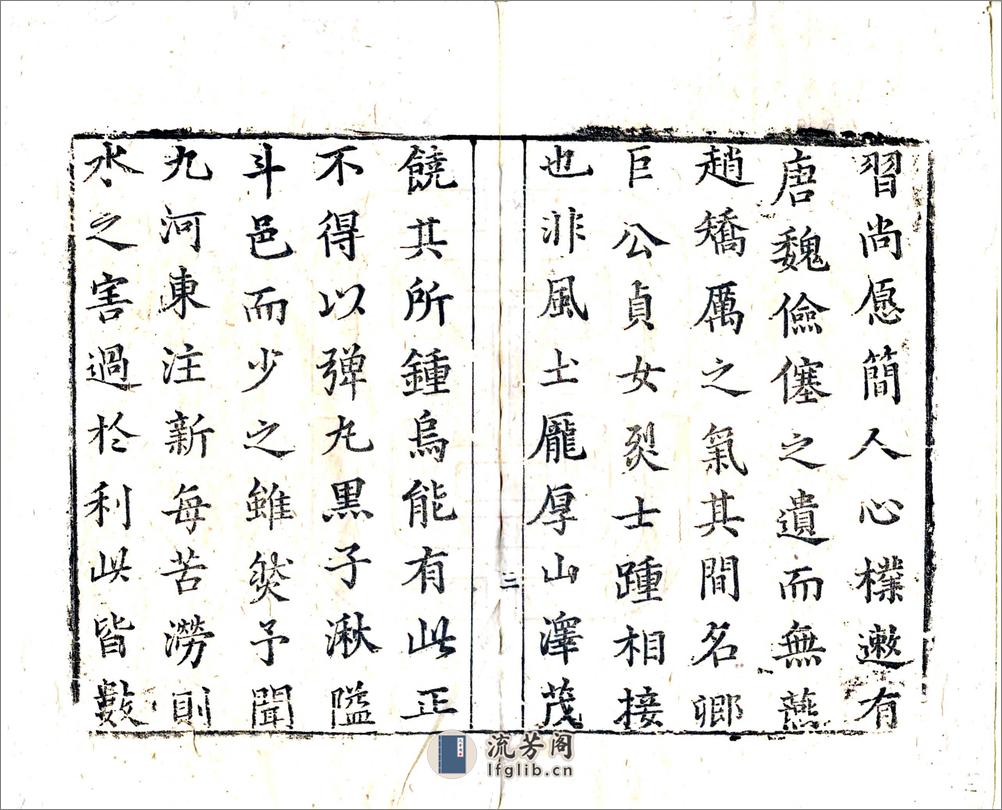 習尚愿簡人心樸遬有
唐魏儉僿之遺而無燕
趙矯厲之氣其間名卿
巨公貞女烈士踵相接
也非風土龐厚山澤茂
三
饒其所鍾烏能有此正
不得以弹丸黒子湫隘
斗邑而少之雖然予聞
九河東注新每苦澇則
水之害過於利此皆數
流芳阁
lfglib.cn